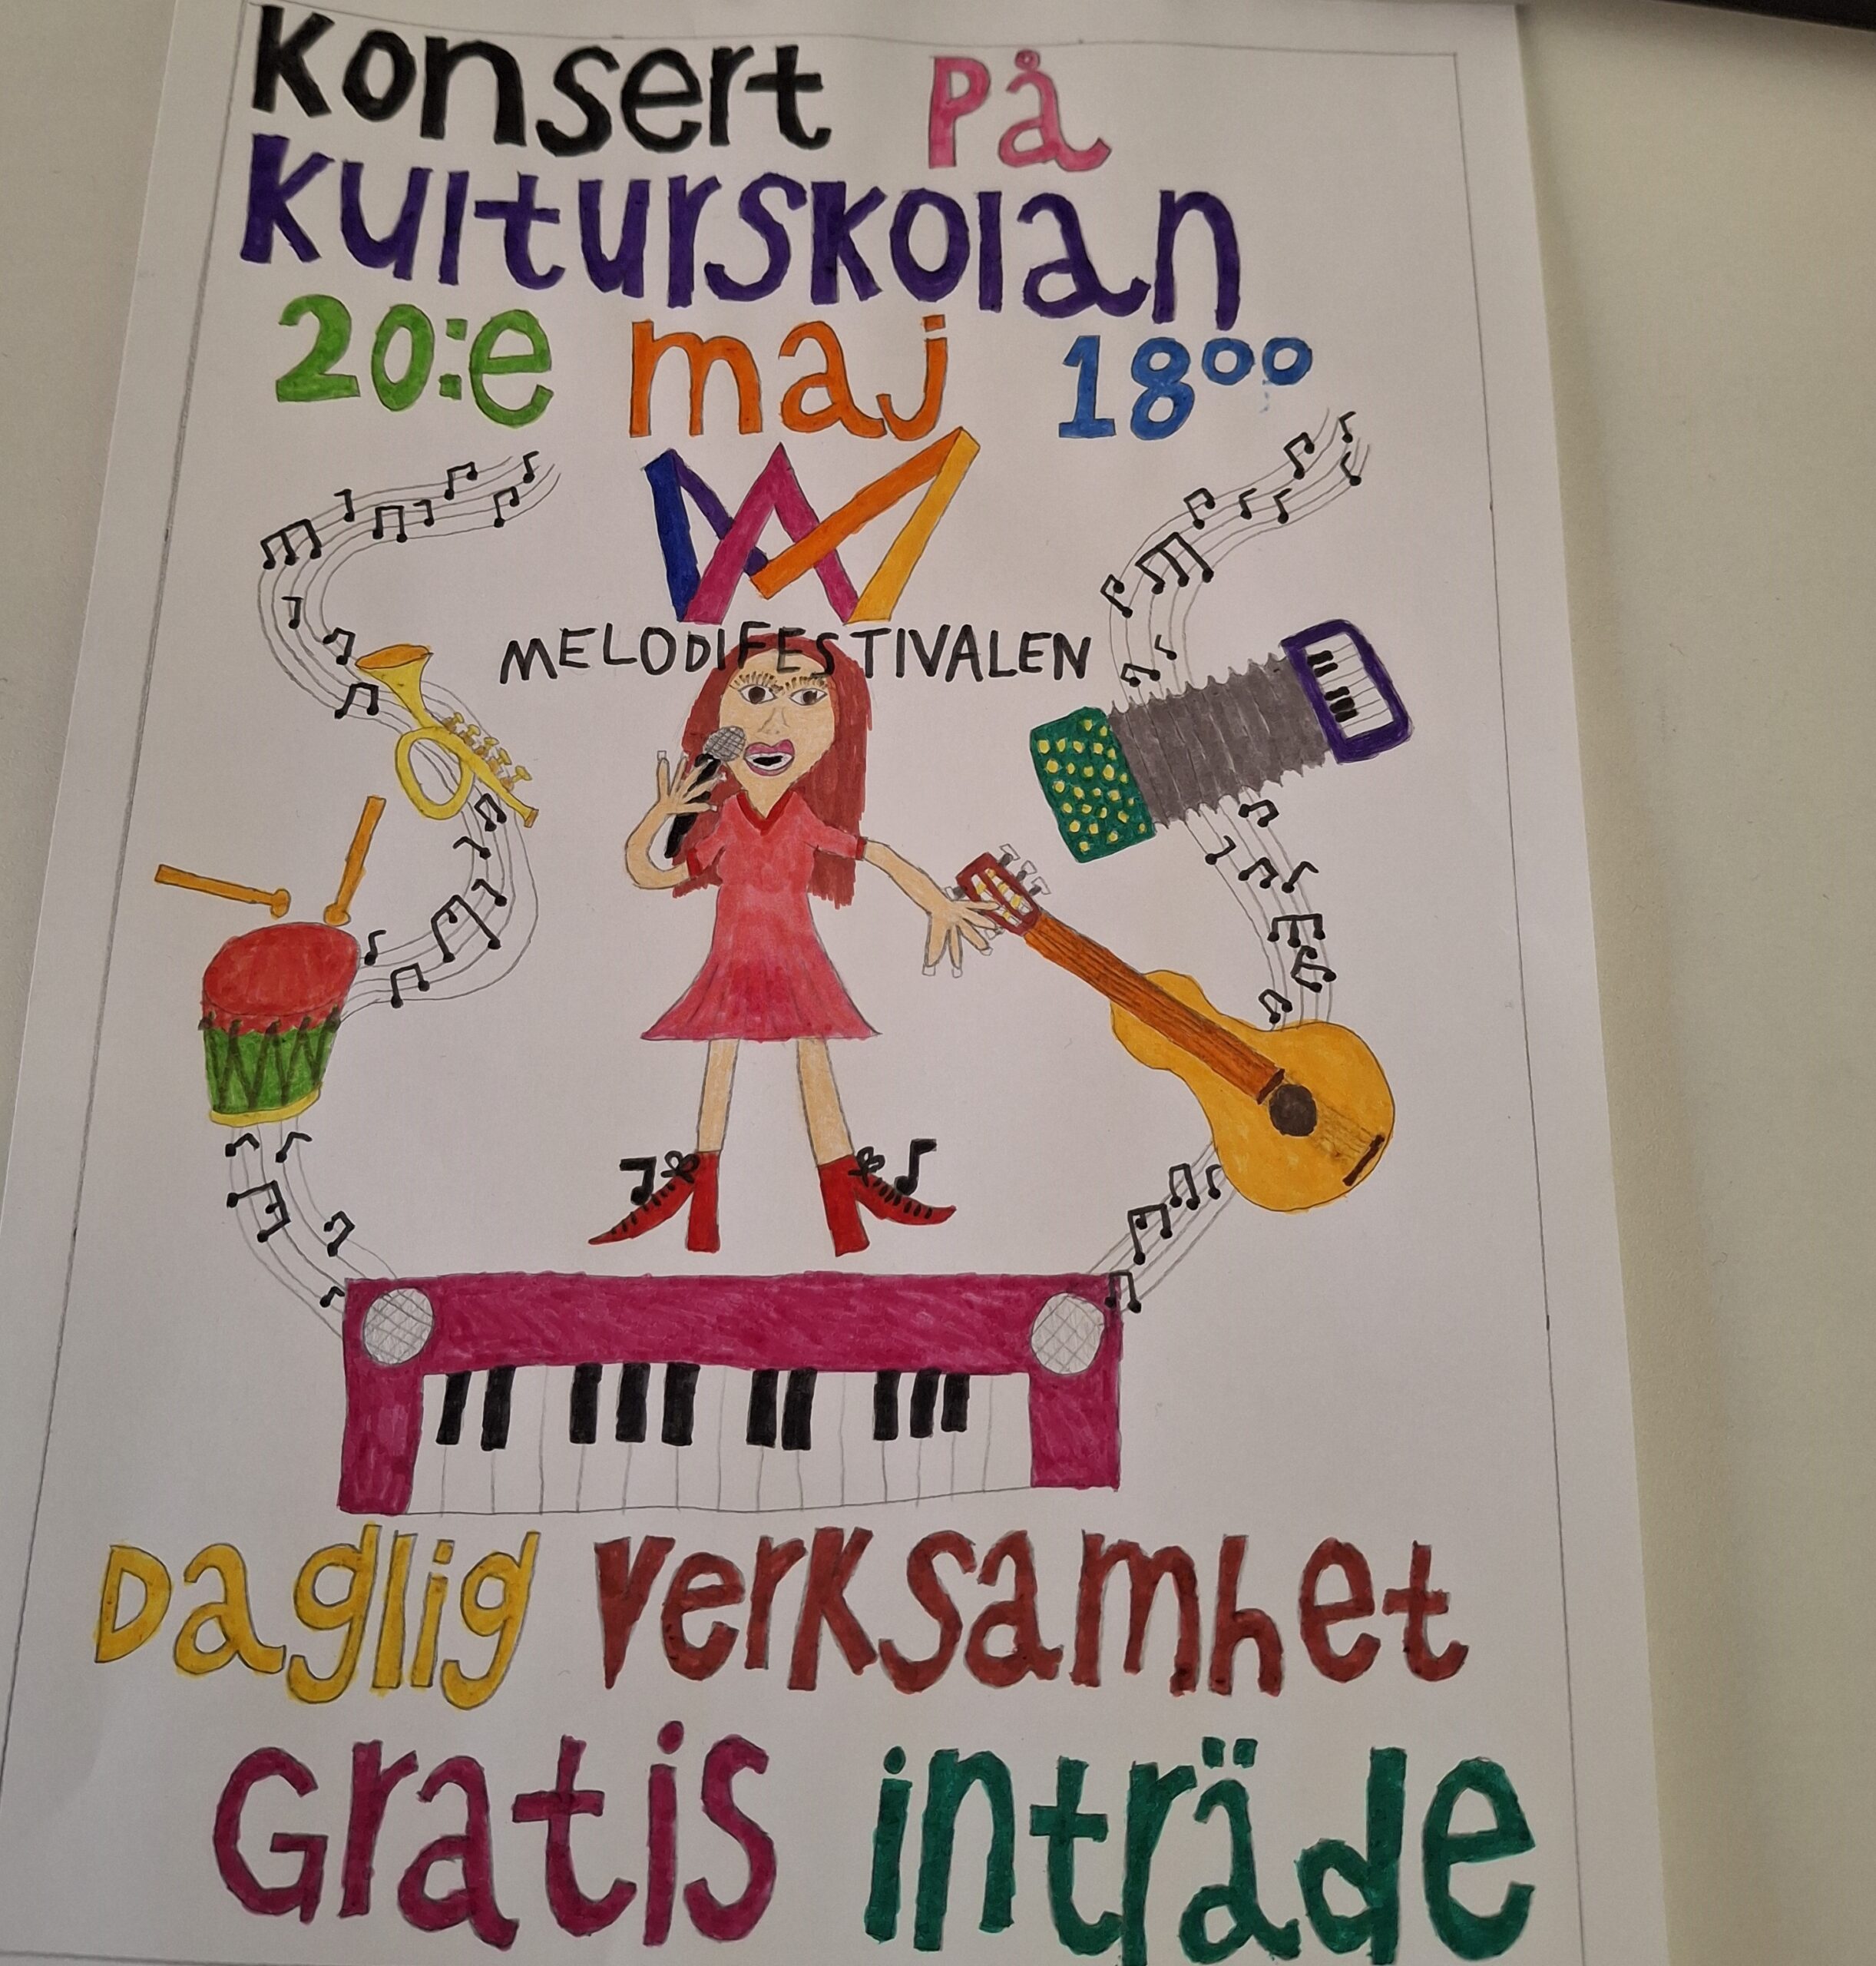 Konsert på
Kulturskolan
20:e maj 18⁰⁰
MELODIFESTIVALEN
Daglig verksamhet
Gratis inträde